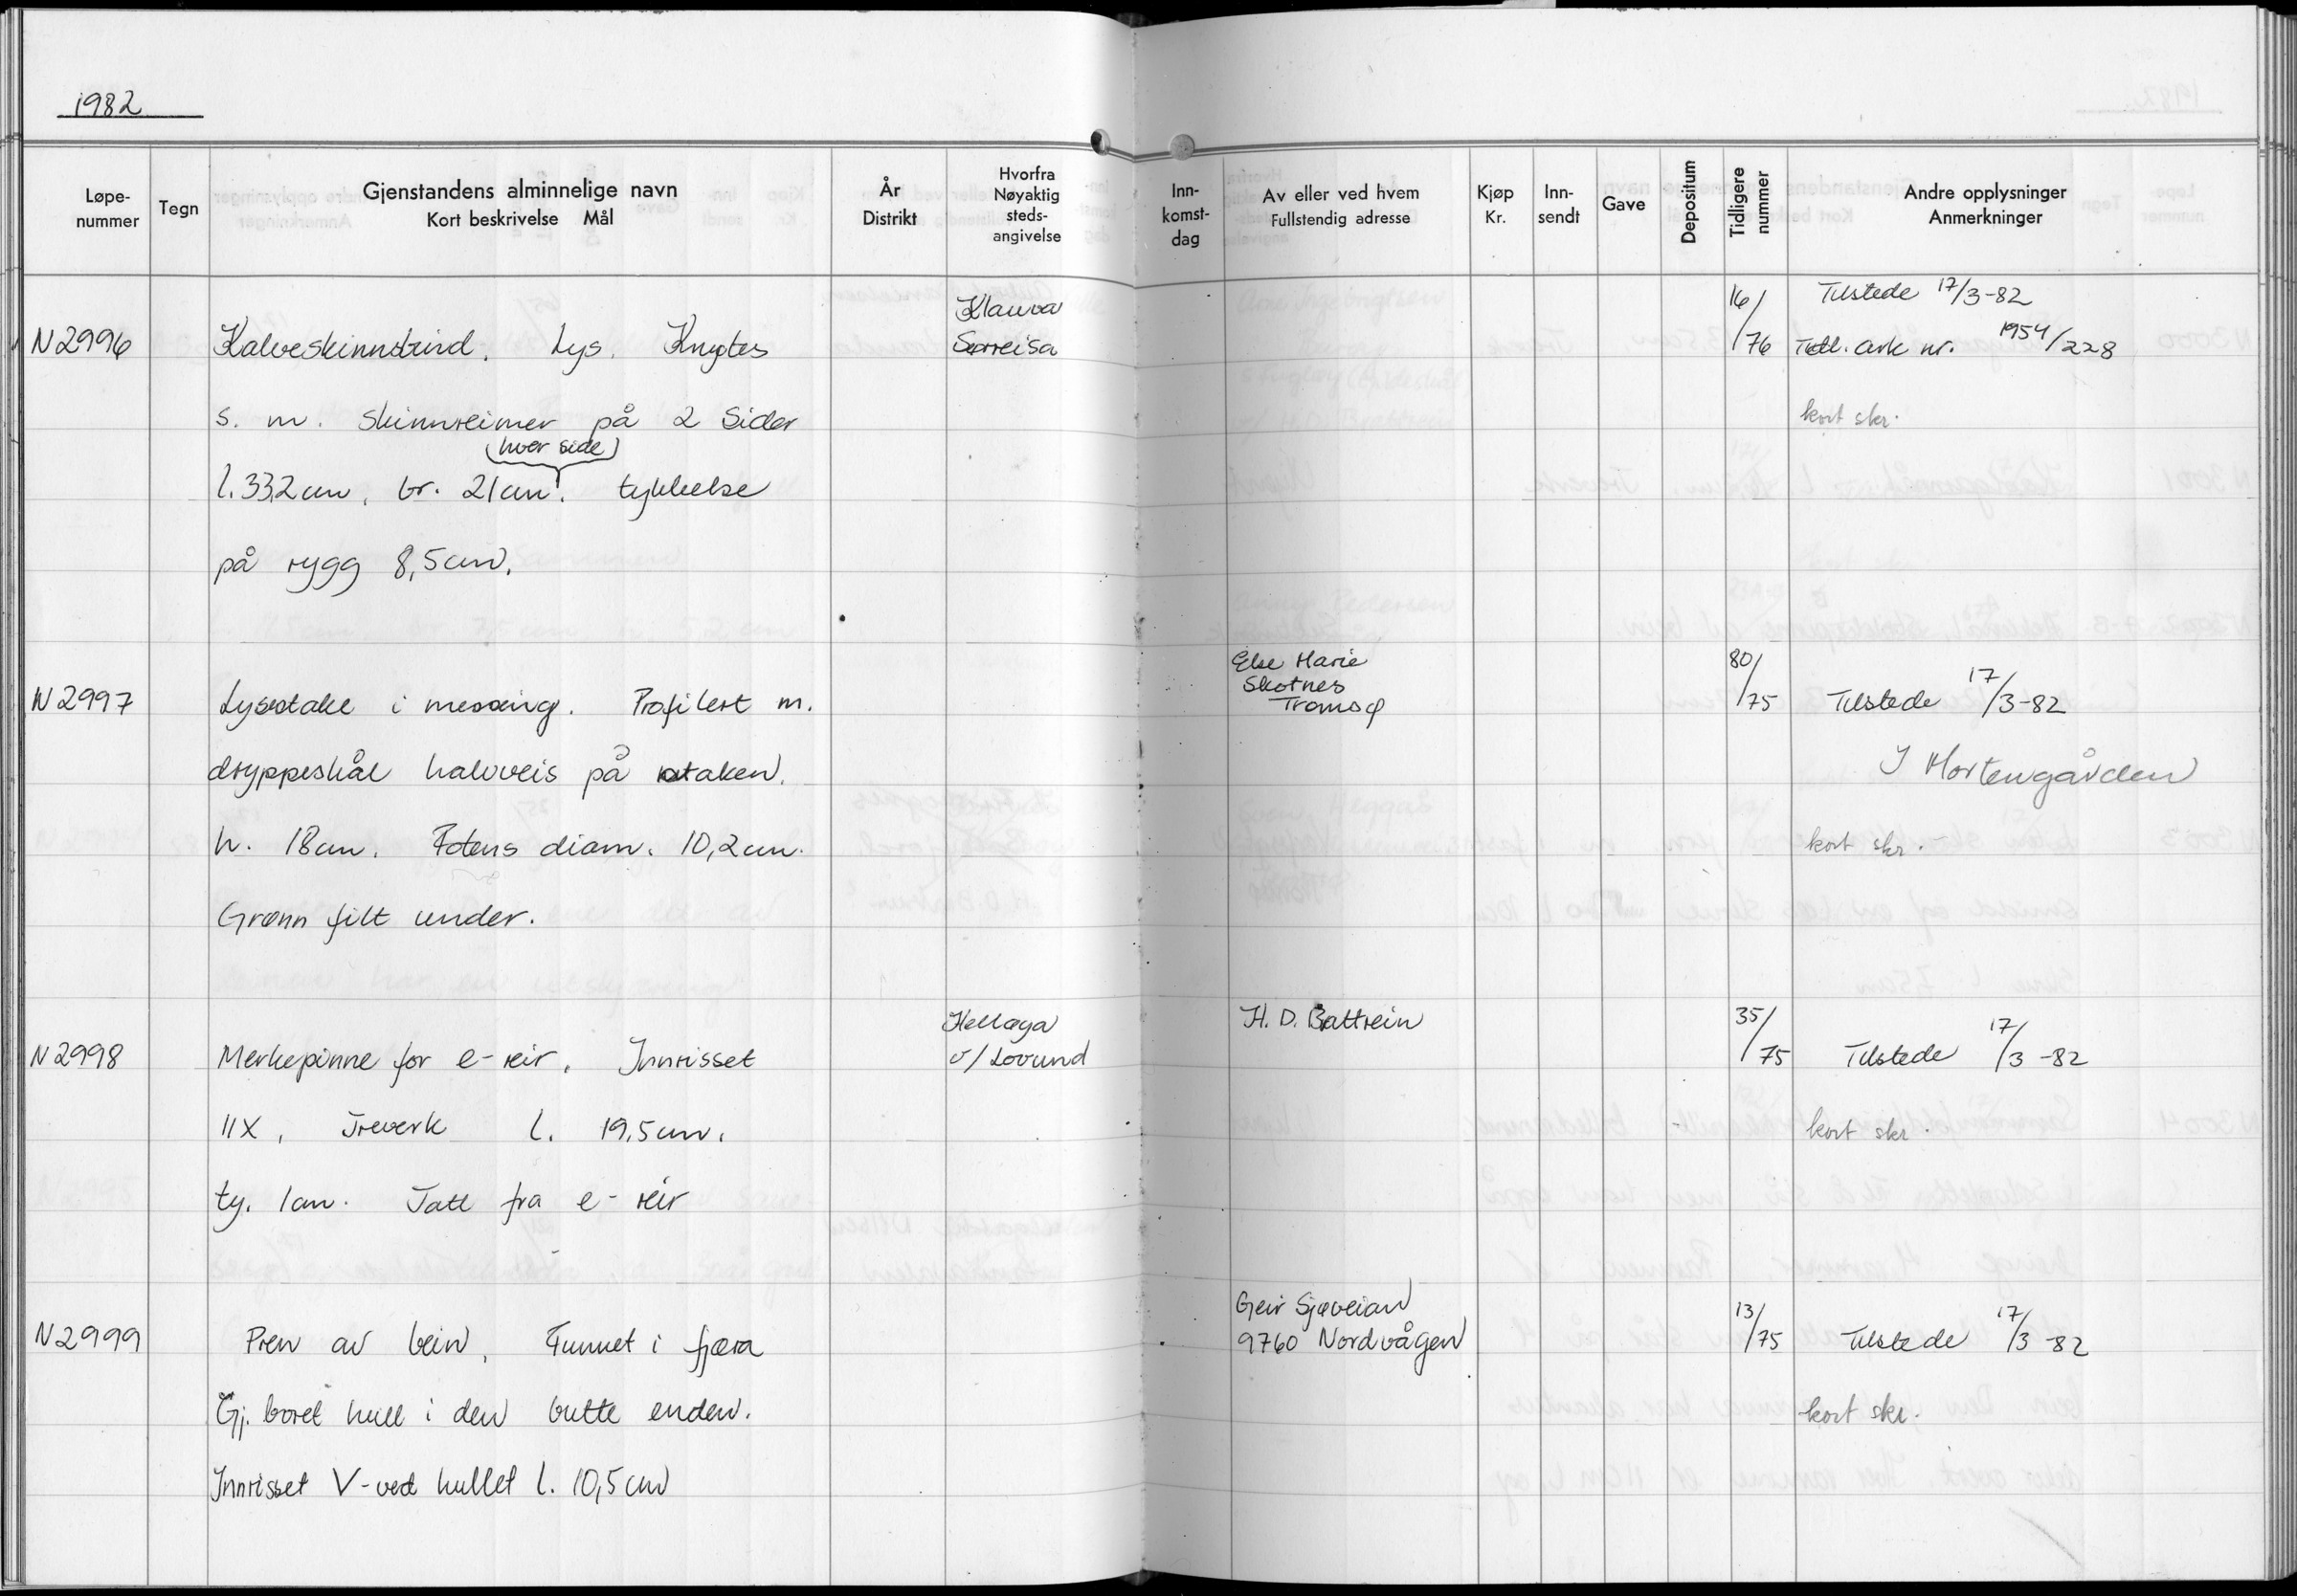 1982
Løpe-nummer Tegn Gjenstandens alminnelige navn Kort beskrivelse Mål År Distrikt Hvorfra Nøyaktig steds-angivelse Inn-komst-dag Av eller ved hvem Fullstendig adresse Kjøp Kr. Inn-sendt Gave Depositum Tidligere nummer Andre opplysninger Anmerkninger
Klauva 16/ Tilstede 17/3-82
N 2996 Kalveskinnsbind. Lys. Knytes Sørreisa /76 ark nr. 1954/228
s. m. skinnreimer på 2 sider kort skr.
(hver side)
l. 33,2 cm, br. 21 cm. tykkelse
på rygg 8,5 cm.
Else Marie 80/
Skotnes 17
N 2997 Lysestake i messing. Profilert m. Tromsø /75 Tilstede /3-82
dryppeskål halvveis på staken. I Mortengården
h. 18 cm. Fotens diam. 10,2 cm. kort skr.
Grønn filt under.
Helløya H. D. Bratrein 35/ 17
N 2998 Merkepinne for e-reir. Innrisset v/ Lovund /75 Tilstede /3-82
IIX, Treverk l. 19,5 cm. kort skr.
ty. 1 cm. Tatt fra e-reir
Geir Sjøveian 13/ 17
N 2999 Pren av bein, Funnet i fjæra 9760 Nordvågen /75 Tilstede /3-82
Gj. boret hull i den butte enden. kort skr.
Innrisset V-ved hullet l. 10,5 cm